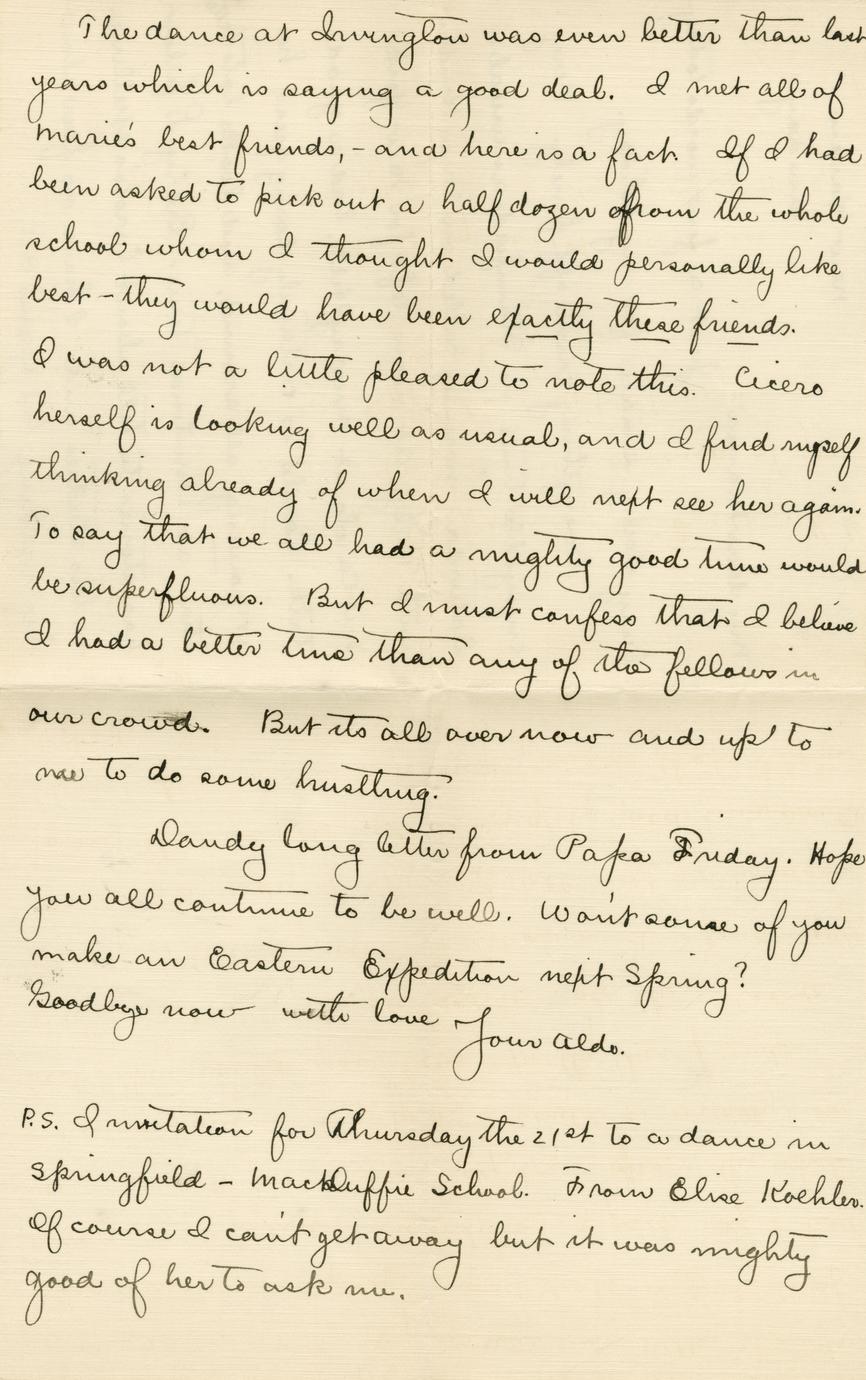 The dance at Irvington was even better than last
years which is saying a good deal. I met all of
Marie's best friends, - and here is a fact. If I had
been asked to pick out a half dozen from the whole
school whom I thought I would personally like
best - they would have been exactly these friends.
I was not a little pleased to note this. Cicero
herself is looking well as usual, and I find myself
thinking already of when I will next see her again.
To say that we all had a mighty good time would
be superfluous. But I must confess that I believe
I had a better time than any of the fellows in
our crowd. But its all over now and up to
me to do some hustling.
Dandy long letter from Papa Friday. Hope
you all continue to be well. Won't some of you
make an Eastern Expedition next Spring?
Goodbye now with love
Your Aldo.
P.S. Invitation for Thursday the 21st to a dance in
Springfield - MacDuffie School. From Elise Koehler.
Of course I can't get away but it was mighty
good of her to ask me.